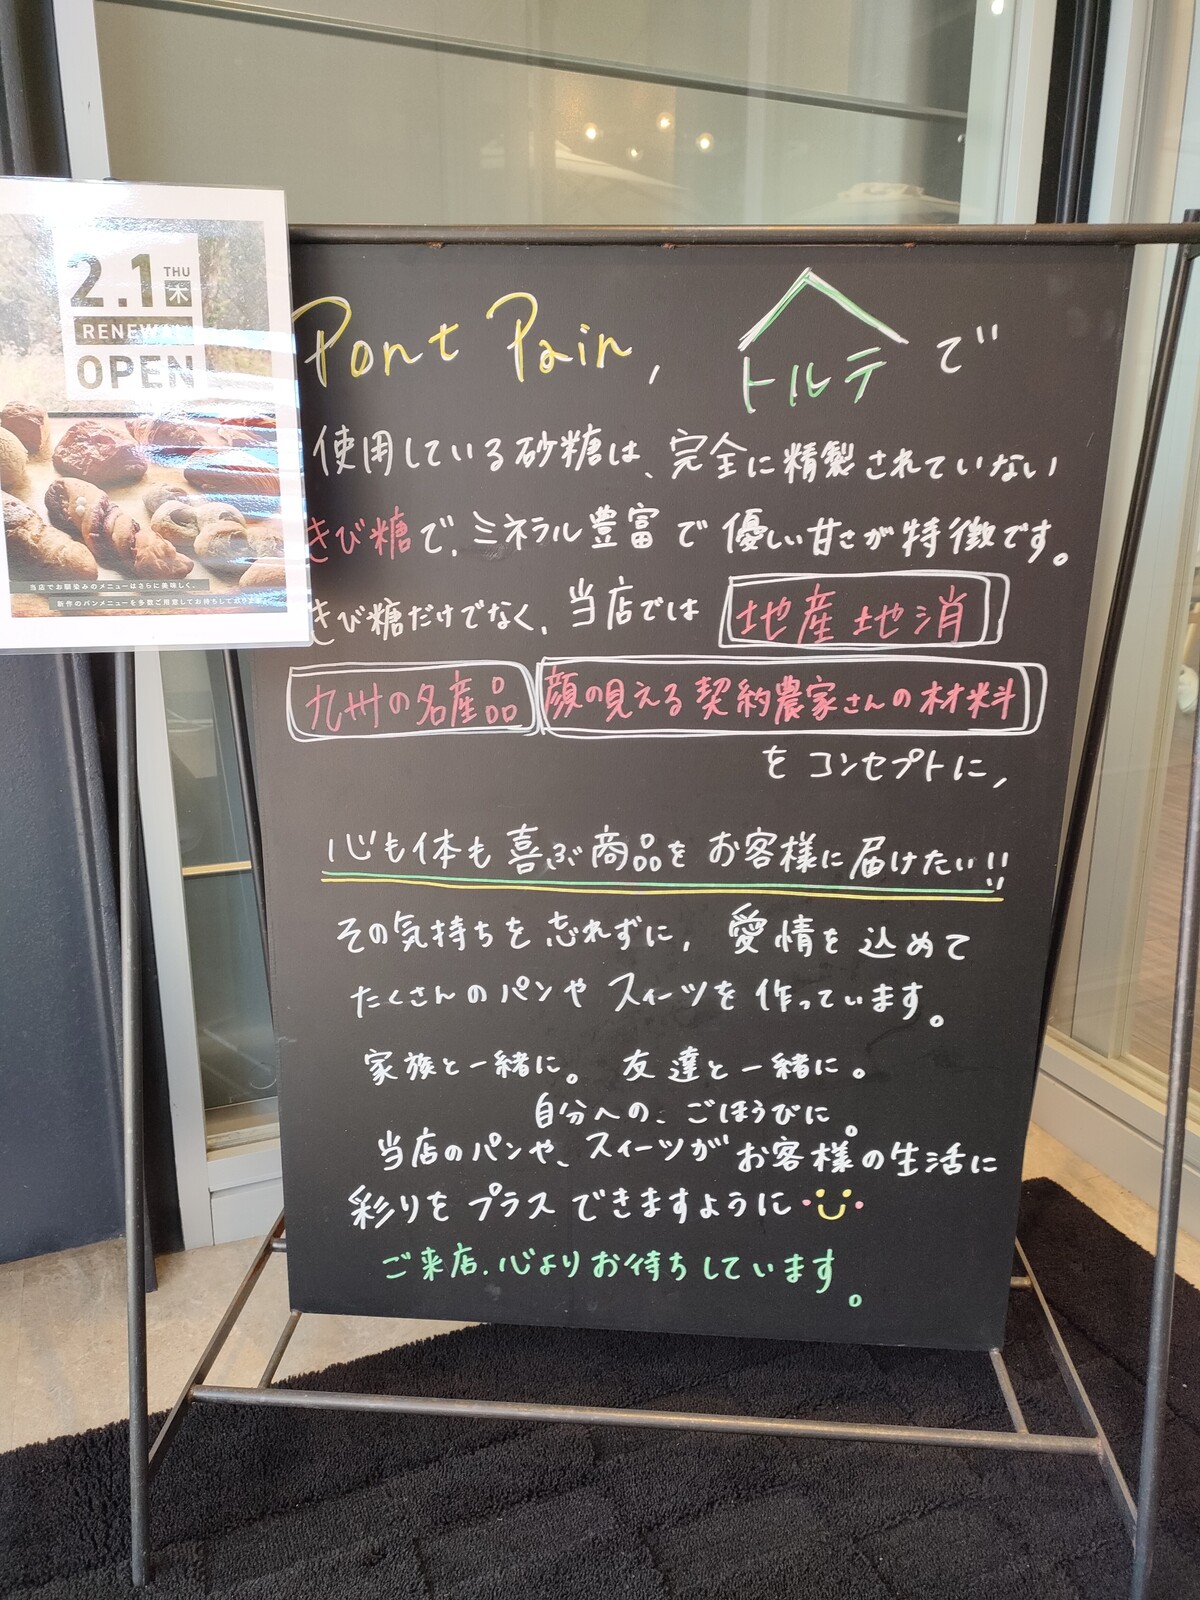 2.1 THU 木
RENEWAL
OPEN
当店でお馴染みのメニューはさらに美味しく、
新作のパンメニューを多数ご用意してお待ちしております
Pont Pain, トルテ で
使用している砂糖は、完全に精製されていない
きび糖で、ミネラル豊富で優しい甘さが特徴です。
きび糖だけでなく、当店では 地産地消
九州の名産品 顔の見える契約農家さんの材料
をコンセプトに,
心も体も喜ぶ商品をお客様に届けたい!!
その気持ちを忘れずに, 愛情を込めて
たくさんのパンやスィーツを作っています。
家族と一緒に。 友達と一緒に。
自分への、ごほうびに。
当店のパンや、スィーツがお客様の生活に
彩りをプラスできますように
ご来店、心よりお待ちしています。